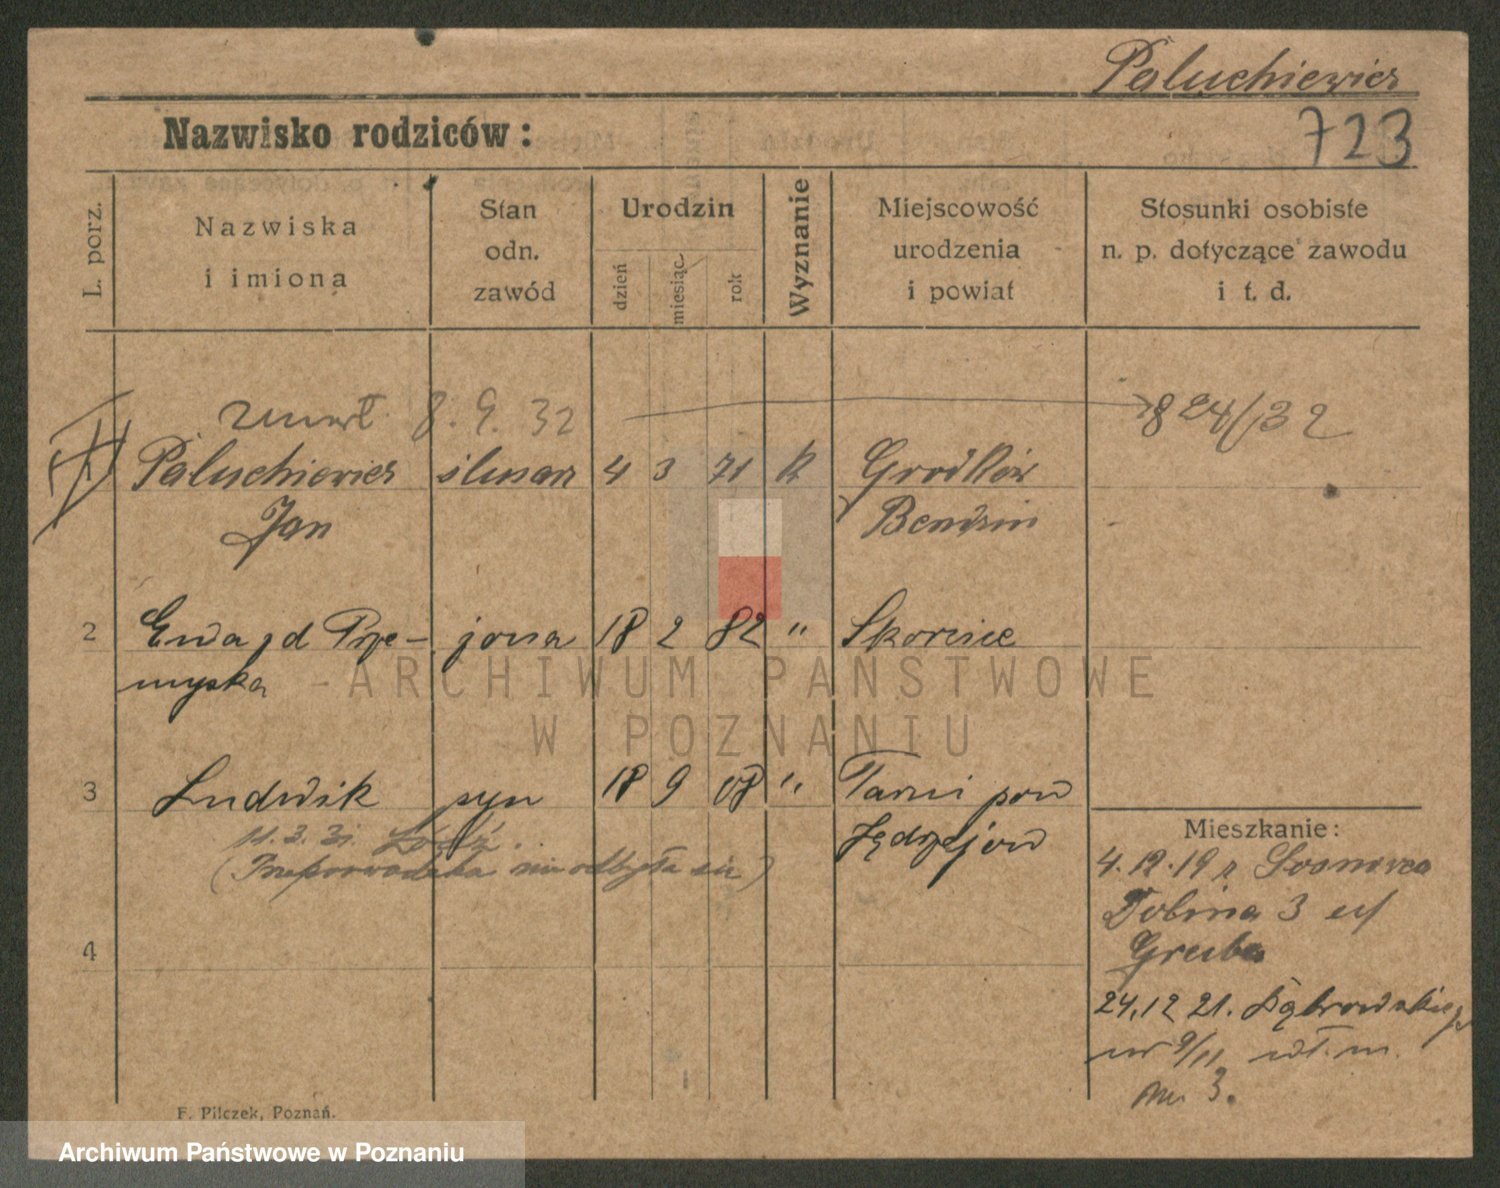 Paluchiewicz
Nazwisko rodziców:
723
L. porz.
Nazwiska
i imiona
Stan
odn.
zawód
Urodzin
dzień
miesiąc
rok
Wyznanie
Miejscowość
urodzenia
i powiat
Stosunki osobiste
n. p. dotyczące zawodu
i t. d.
zmarł 8.9.32 824/32
Paluchiewicz ślusarz 4 3 71 k Grodków
Jan Bendzin
2 Ewa Prze-
myska
żona 18 2 82 "
3 Ludwik syn 18 9 08 "
pow
Jędrzejow
11.3.31. Łódź.
(Przeprowadzka nie odbyła się)
4
Mieszkanie:
4.12.19 z Sosnowca
3
Gruba
24.12 21. Dąbrowskiego
nr 9/11
m. 3.
F. Pilczek, Poznań.
ARCHIWUM PAŃSTWOWE
W POZNANIU
Archiwum Państwowe w Poznaniu